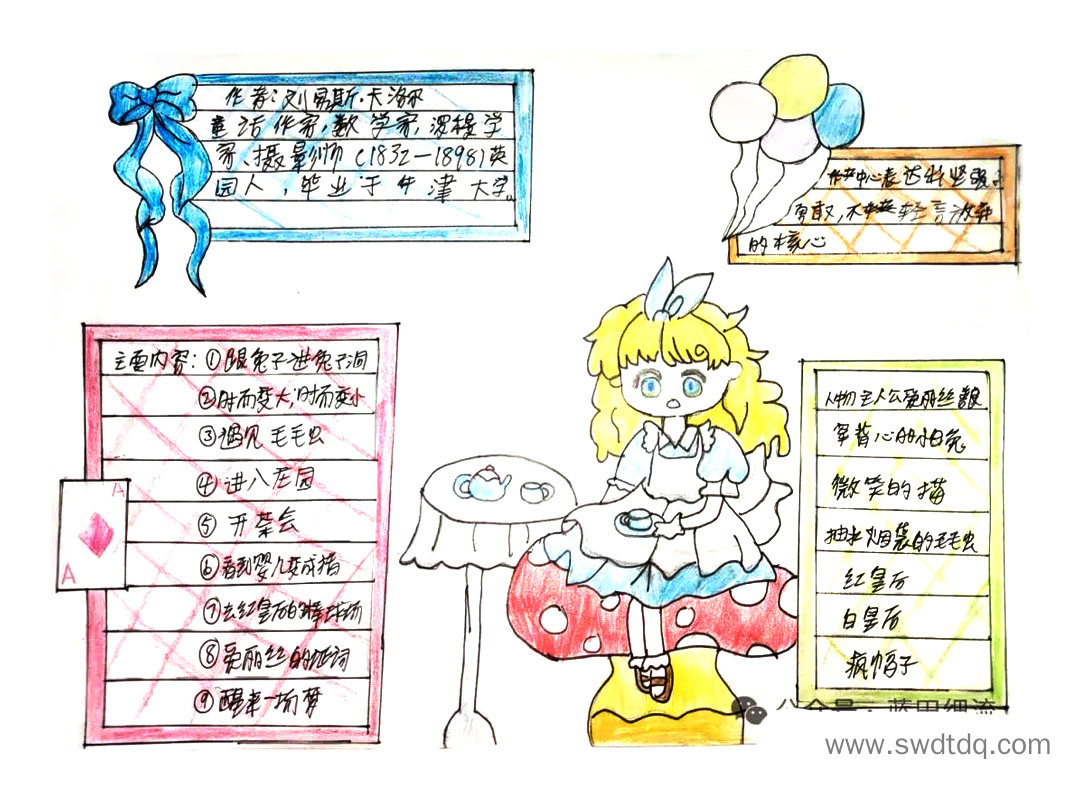 作者:刘易斯·卡洛尔
童话作家,数学家,逻辑学
家、摄影师(1832—1898)英
国人,毕业于牛津大学。
作中心表达
勇敢,不轻言放弃
的核心
主要内容:①跟兔子进兔子洞
②时而变大,时而变小
③遇见毛毛虫
④进入花园
⑤开茶会
⑥看到婴儿变成猪
⑦去红皇后的棒球场
⑧爱丽丝的证词
⑨醒来一场梦
A
A
人物主人公爱丽丝
穿背心的小白兔
微笑的描
抽水烟袋的毛毛虫
红皇后
白皇后
疯帽子
公众号·蓝田细流
www.swdtdq.com